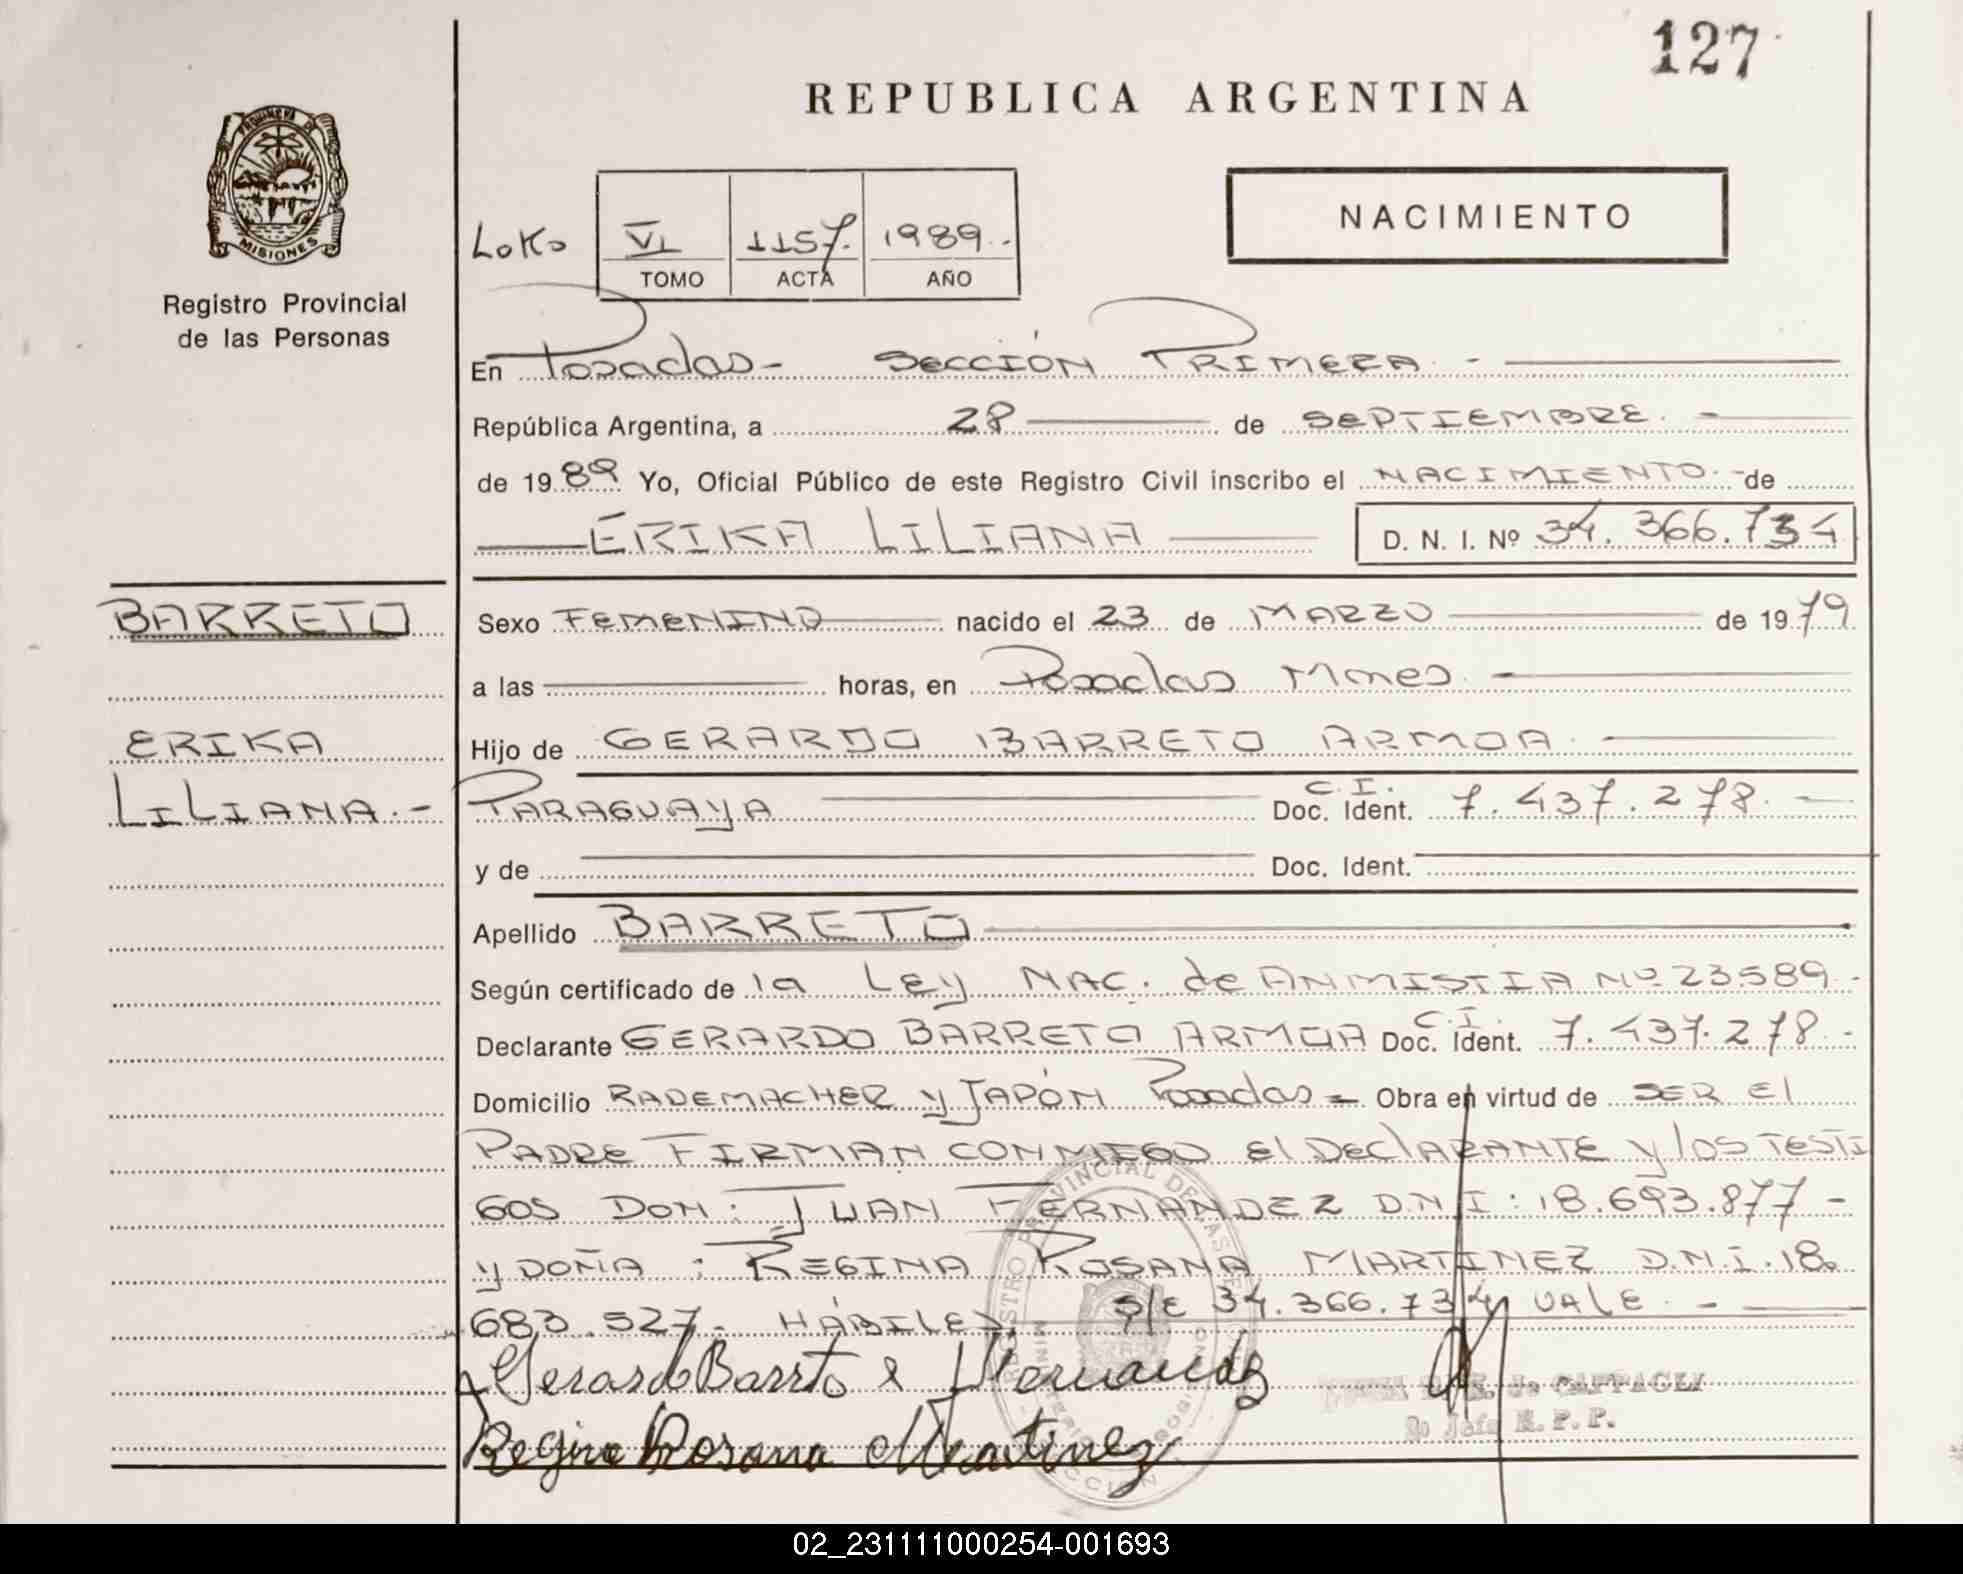 127
REPUBLICA ARGENTINA
PROVINCIA DE
MISIONES
Registro Provincial
de las Personas
VI 1157. 1989.-
TOMO ACTA AÑO
NACIMIENTO
En Posadas- SECCIÓN PRIMERA.-
República Argentina, a 28 de SEPTIEMBRE.-
de 1989 Yo, Oficial Público de este Registro Civil inscribo el NACIMIENTO.- de
ERIKA LILIANA D. N. I. Nº 34.366.734
BARRETO
ERIKA
LILIANA.-
Sexo FEMENINO nacido el 23 de MARZO de 1979
a las horas, en Posadas Mnes.-
Hijo de GERARDO BARRETO ARMOA.
PARAGUAYA C.I. Doc. Ident. 7.437.278.-
y de Doc. Ident.
Apellido BARRETO
Según certificado de la LEY NAC. de ANMISTIA Nº 23.589.-
Declarante GERARDO BARRETO ARMOA C.I. Doc. Ident. 7.437.278.-
Domicilio RADEMACHER y JAPÓN Posadas= Obra en virtud de SER El
PADRE FIRMAN CONMIGO El DEClARANTE y los TESTI
GOS DON: JUAN FERNANDEZ D.N.I: 18.693.877-
y DOÑA: REGINA ROSANA MARTINEZ D.N.I. 18.
683.527- HÁBILES. S/E 34.366.734 VALE.-
Gerardo Barreto Hernandez
Regina Rosana Martinez
REGISTRO PROVINCIAL DE LAS
de CAPPAGLI
Jefe R.P.P.
02_231111000254-001693